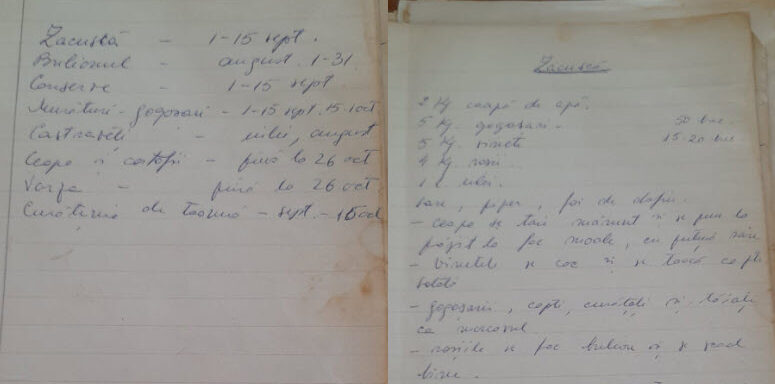 Zacuscă - 1-15 sept.
Bulionul - august 1-31
Conserve - 1-15 sept
Murături - gogoșari - 1-15 sept. 15 oct
Castraveți - iulie, august
Ceapa și cartofii - până la 26 oct
Varza - până la 26 oct
Curățenia de toamnă - sept. - 15 oct
Zacuscă
2 Kg. ceapă de apă.
5 Kg. gogoșari. 50 buc.
5 Kg. vinete 15-20 buc
4 Kg. roșii.
1 l. ulei.
sare, piper, foi de dafin.
- ceapa se taie mărunt și se pune la
prăjit la foc moale, cu puțină sare
- Vinetele se coc și se toacă ca pt.
salată
- gogoșarii, copți, curățați și tăiați
ca
- roșiile se fac bulion și se scad
bine.